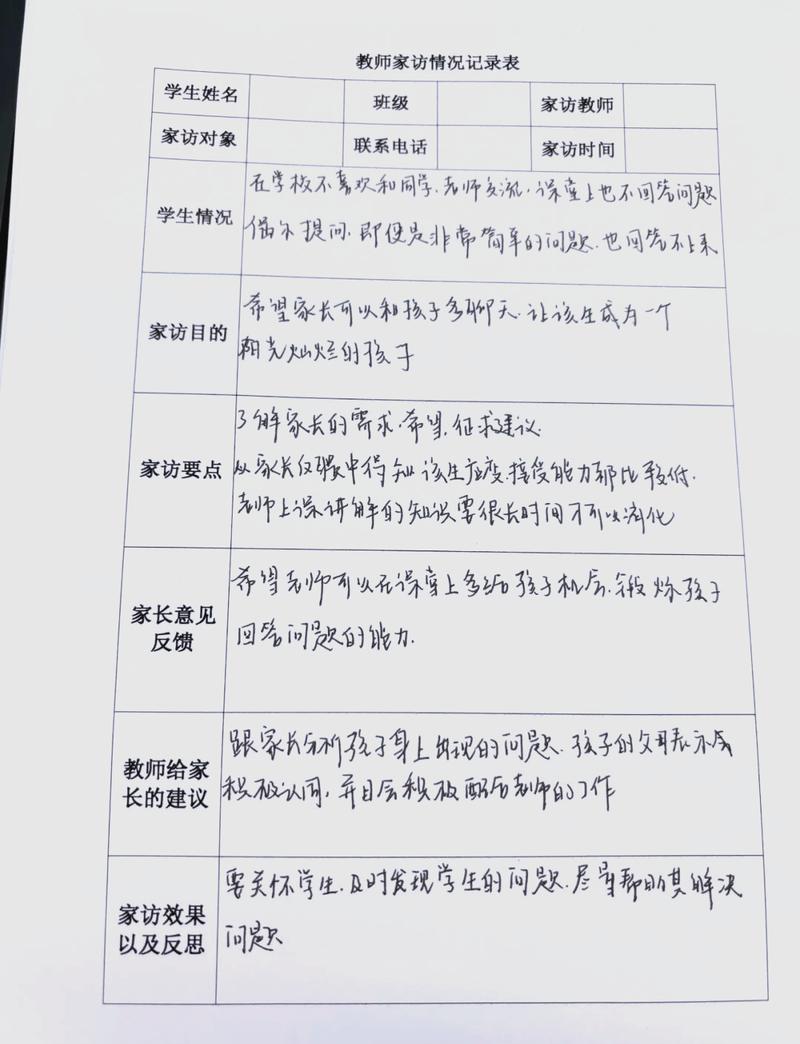 教师家访情况记录表
学生姓名 班级 家访教师
家访对象 联系电话 家访时间
学生情况
在学校不喜欢和同学、老师交流，课堂上也不回答问题
偶尔提问，即便是非常简单的问题，也回答不上来
家访目的
希望家长可以和孩子多聊天，让该生成为一个
阳光灿烂的孩子
家访要点
了解家长的需求，希望，征求建议.
从家长反馈中得知该生应变，接受能力都比较低.
老师上课讲解的知识要很长时间才可以消化
家长意见
反馈
希望老师可以在课堂上多给孩子机会，锻炼孩子
回答问题的能力.
教师给家
长的建议
跟家长分析孩子身上出现的问题，孩子的父母表示会
积极认同，并且会积极配合老师的工作
家访效果
以及反思
要关怀学生，及时发现学生的问题，尽量帮助其解决
问题